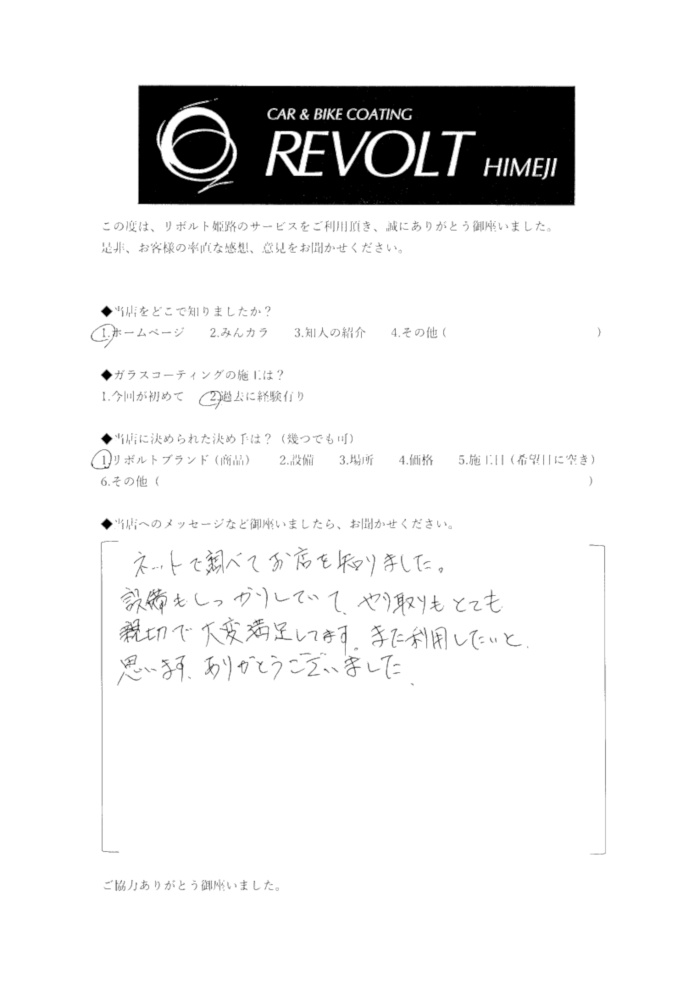 CAR & BIKE COATING
REVOLT HIMEJI
この度は、リボルト姫路のサービスをご利用頂き、誠にありがとう御座いました。
是非、お客様の率直な感想、意見をお聞かせください。
◆当店をどこで知りましたか？
1.ホームページ 2.みんカラ 3.知人の紹介 4.その他（ ）
◆ガラスコーティングの施工は？
1.今回が初めて 2.過去に経験有り
◆当店に決められた決め手は？（幾つでも可）
1.リボルトブランド（商品） 2.設備 3.場所 4.価格 5.施工日（希望日に空き）
6.その他（ ）
◆当店へのメッセージなど御座いましたら、お聞かせください。
ネットで調べてお店を知りました。
設備もしっかりしていて、やり取りもとても
親切で大変満足してます。また利用したいと
思います。ありがとうございました。
ご協力ありがとう御座いました。